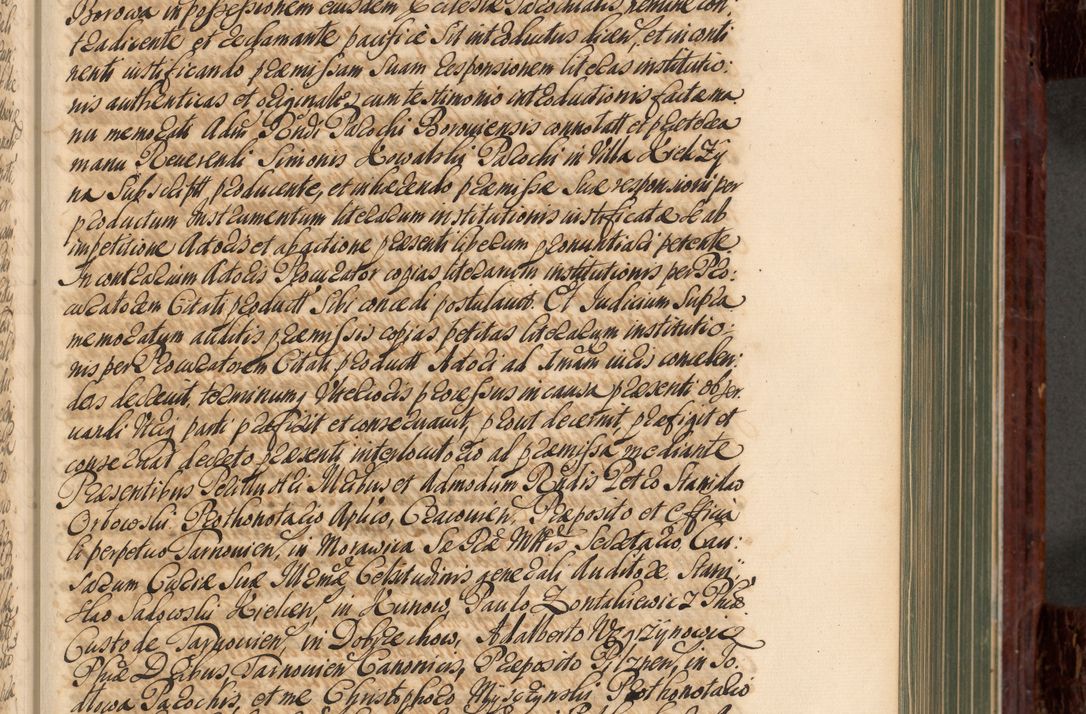 Borowa in possessionem eiusdem Ecclesiæ Parochialis nemine con
tradicente et reclamante pacificè sit introductus dicen, et in conti
nenti iustificando præmissam suam responsionem literas institutio:
nis authenticas et originales cum testimonio introductionis facta ma
nu memorati Adm Rndi Parochi Boroviensis connotatt et præterea
manu Reverendi Simonis Kowalski Parochi in Villa Kiełczy
na subscriptt producente, et inhærendo præmissæ suæ responsioni per
productum Instrumentum literarum institutionis iustificatæ se ab
impetitione Actoris et ab actione præsenti liberum pronuntiari petente
In contrarium Actoris Procurator copias literarum institutionis per Pro:
curatorem Citati productt sibi concedi postulavit. Et Judicium supra
memoratum auditis præmissis copias petitas literarum institutio:
nis per Procuratorem Citati productt Actori ad Imum iuris conceden:
das decrevit, terminum ulterioris processus in causa præsenti obser
vandi utriq parti præfixit et conservavit, prout decernit, præfigit et
conservat decreto præsenti interlocutorio ad præmissa mediante
Præsentibus Perillustri Mtribus et Admodum Rndis Petro Stanislao
Orłowski Prothonotario Aplico, Cracovien, Præposito et Officia
li perpetuo Tarnovien, in Morawica Sæ Ræ Mttis Secretario, Cau:
sarum Curiæ Suæ Illmæ Celsitudinis generali Auditore, Stani
slao Sadowski Kielcen, in Kunow, Paulo Zontakiewicz Phiæ
Custode Tarnovien, in Dobrzechow, Adalberto Węgrzynowicz
Phiæ Dribus, Tarnovien Canonicis, Præposito Pilznen, in Jo
dłowa Parochis, et me Christophoro Myszczynski Prothonotario